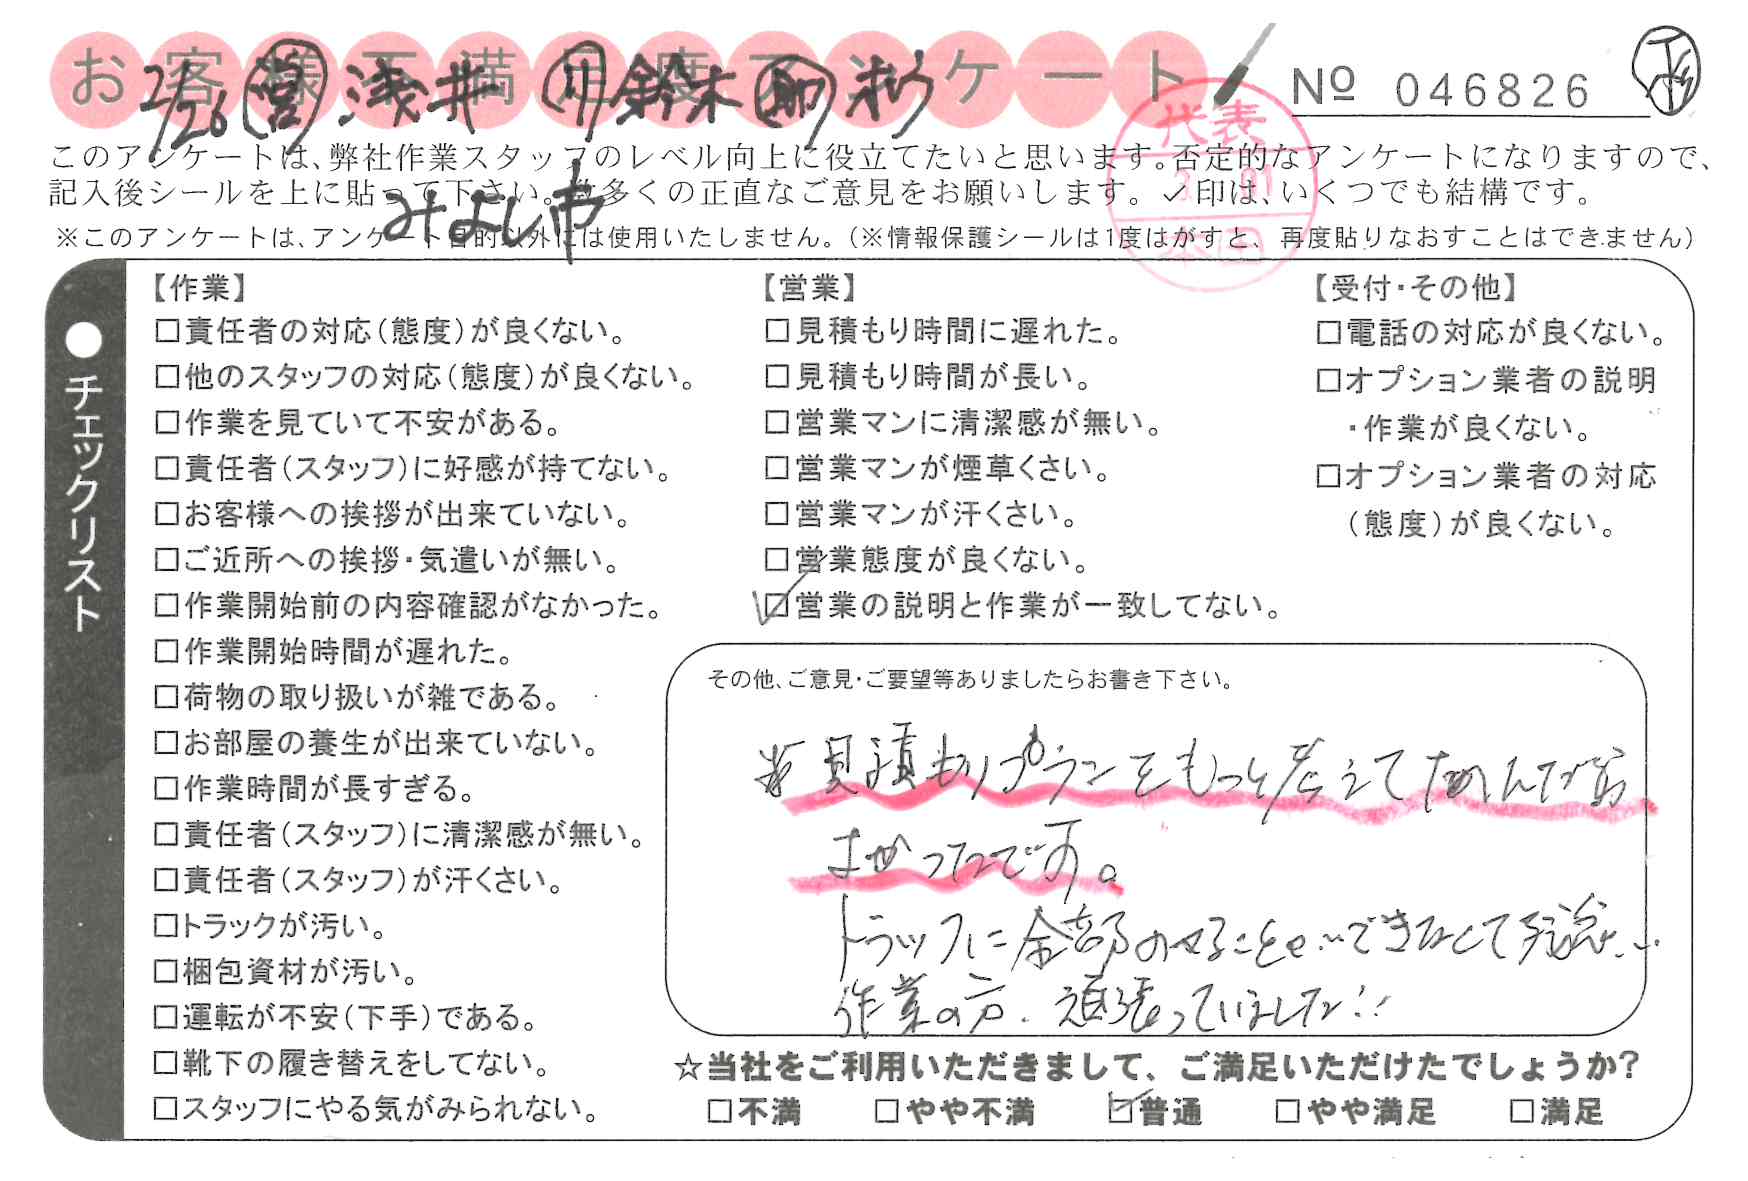 お客様不満足度アンケート
No 046826
2/26 営 浅井 鈴木
みよし市
代表
本田
このアンケートは、弊社作業スタッフのレベル向上に役立てたいと思います。否定的なアンケートになりますので、
記入後シールを上に貼って下さい。数多くの正直なご意見をお願いします。✓印は、いくつでも結構です。
※このアンケートは、アンケート目的以外には使用いたしません。(※情報保護シールは1度はがすと、再度貼りなおすことはできません)
●チェックリスト
【作業】
□責任者の対応(態度)が良くない。
□他のスタッフの対応(態度)が良くない。
□作業を見ていて不安がある。
□責任者(スタッフ)に好感が持てない。
□お客様への挨拶が出来ていない。
□ご近所への挨拶・気遣いが無い。
□作業開始前の内容確認がなかった。
□作業開始時間が遅れた。
□荷物の取り扱いが雑である。
□お部屋の養生が出来ていない。
□作業時間が長すぎる。
□責任者(スタッフ)に清潔感が無い。
□責任者(スタッフ)が汗くさい。
□トラックが汚い。
□梱包資材が汚い。
□運転が不安(下手)である。
□靴下の履き替えをしてない。
□スタッフにやる気がみられない。
【営業】
□見積もり時間に遅れた。
□見積もり時間が長い。
□営業マンに清潔感が無い。
□営業マンが煙草くさい。
□営業マンが汗くさい。
□営業態度が良くない。
☑営業の説明と作業が一致してない。
【受付・その他】
□電話の対応が良くない。
□オプション業者の説明
・作業が良くない。
□オプション業者の対応
(態度)が良くない。
その他、ご意見・ご要望等ありましたらお書き下さい。
見積もりプランをもっと考えて
よかったです。
トラックに全部のせること できなくて残念…
作業の方、頑張っていました!!
☆当社をご利用いただきまして、ご満足いただけたでしょうか?
□不満 □やや不満 ☑普通 □やや満足 □満足